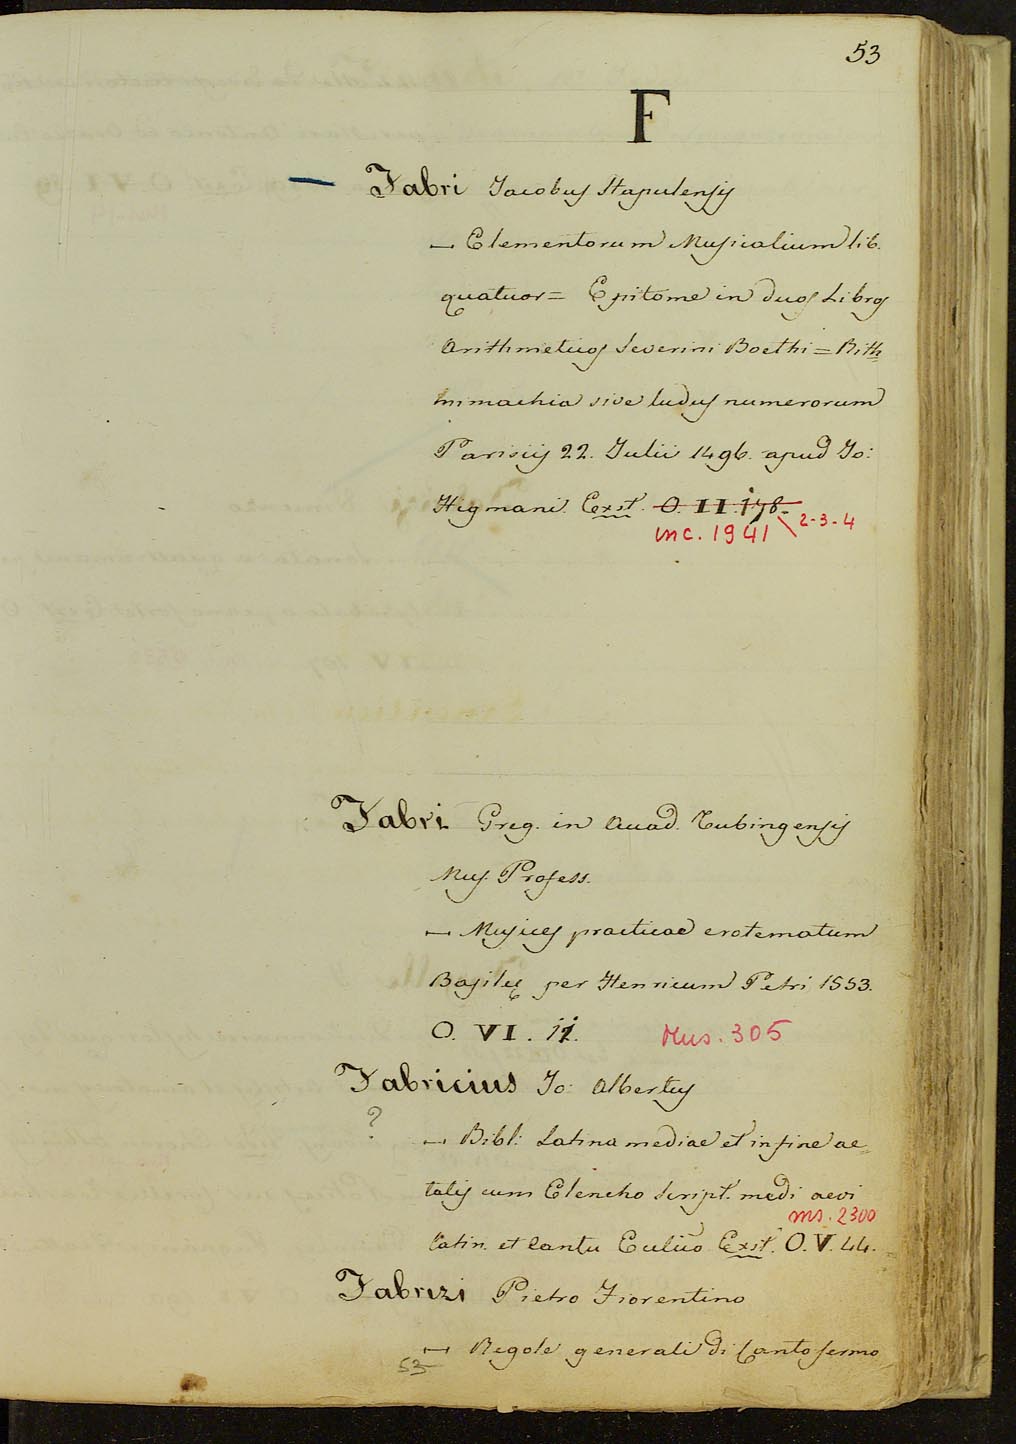 53
F
— Fabri Jacobus Stapulensis
— Elementorum Musicalium lib.
quatuor = Epitome in duos Libros
Arithmeticos Severini Boethi = Rith
mimachia sive ludus numerorum
Parisiis 22. Julii 1496. apud Jo:
Higmani. Exst. O. II. 178.
inc. 1941 \ 2-3-4
Fabri Greg. in Accad. Tubingensis
Mus. Profess.
— Musices practicae erotematum
Basileę per Henricum Petri 1553.
O. VI. 12. Mus. 305
Fabricius Jo: Albertus
?
— Bibl: Latina mediae et infine ae=
talis cum Elencho Script. medi aevi
ms. 2300
latin. et cantu Exst. O. V. 44.
Fabrizi Pietro Fiorentino
— Regole generali di Canto fermo
53